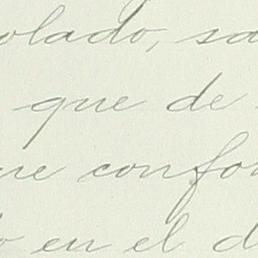 olado, sa
que de
ue confor
o en el d